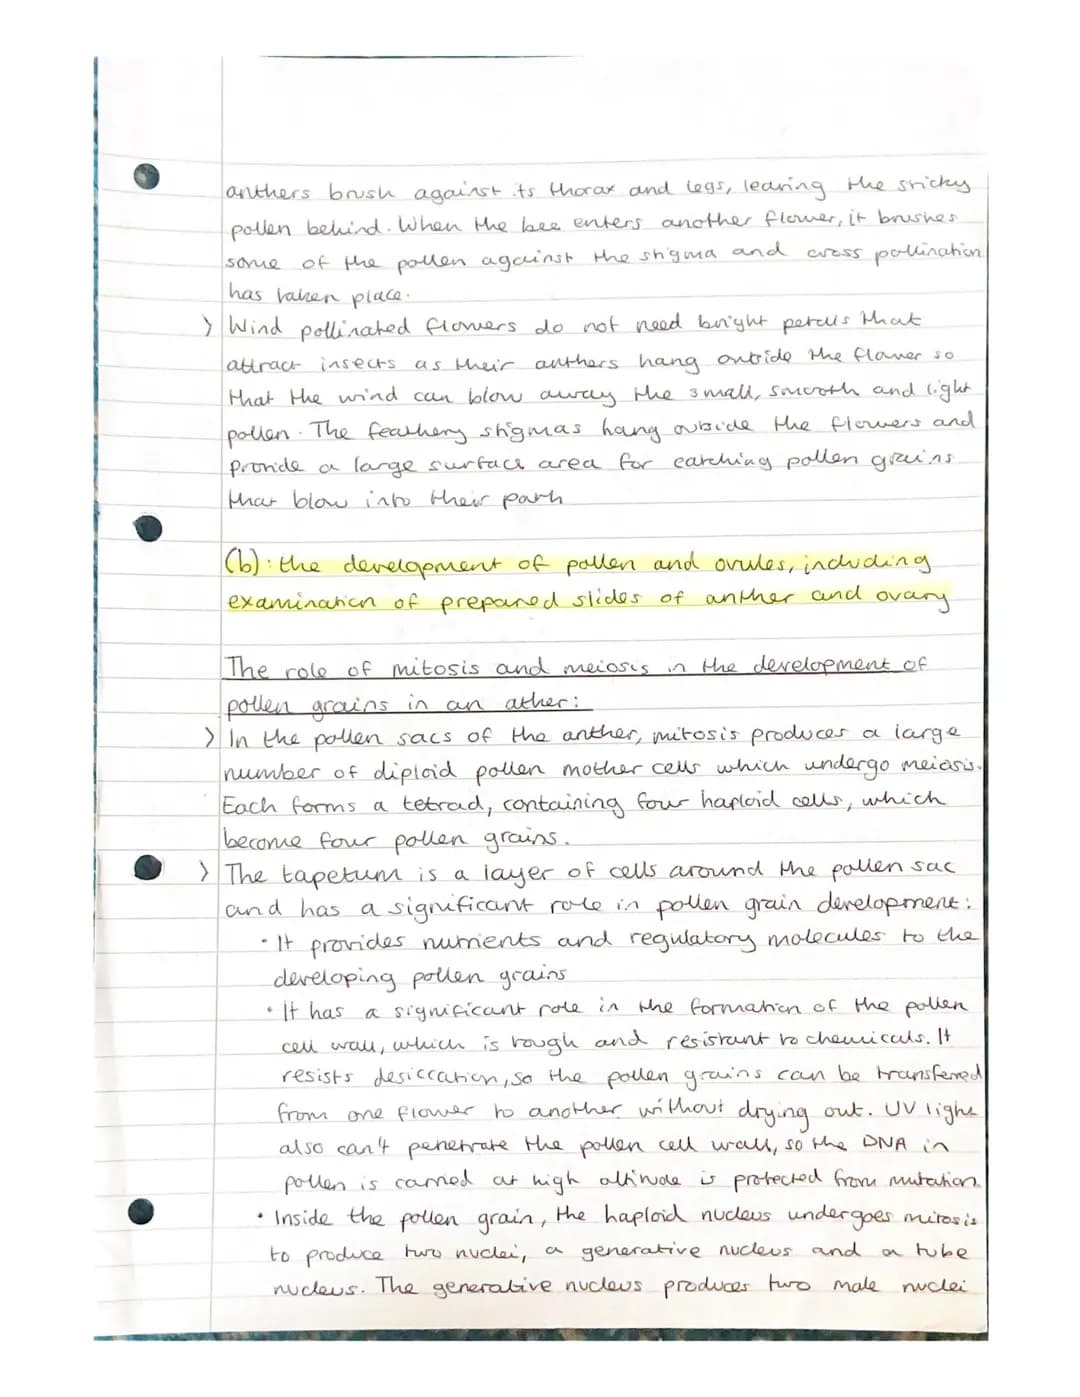 anthers brush against its thorax and legs, leaving the sticky
pollen behind. When the bee enters another flower, it brushes
some of the pollen against the stigma and cross pollination
has taken place.
> Wind pollinated flowers do not need bright petals that
attract insects as their anthers hang outside the flower so
that the wind can blow away the small, smooth and light
pollen. The feathery stigmas hang outside the flowers and
provide a large surface area for catching pollen grains
that blow into their path
(b): the development of pollen and ovules, including
examination of prepared slides of anther and ovary
The role of mitosis and meiosis in the development of
pollen grains in an ather:
> In the pollen sacs of the anther, mitosis produces a large
number of diploid pollen mother cells which undergo meiosis.
Each forms a tetrad, containing four haploid cells, which
become four pollen grains.
> The tapetum is a layer of cells around the pollen sac
and has a significant role in pollen grain development:
• It provides nutrients and regulatory molecules to the
developing pollen grains
• It has a significant role in the formation of the pollen
cell wall, which is tough and resistant to chemicals. It
resists desiccation, so the pollen grains can be transferred
from one flower to another without drying out. UV light
also can't penetrate the pollen cell wall, so the DNA in
pollen is carried at high altitude is protected from mutation.
• Inside the pollen grain, the haploid nucleus undergoes mitosis
to produce two nuclei, a generative nucleus and a tube
nucleus. The generative nucleus produces two male nuclei